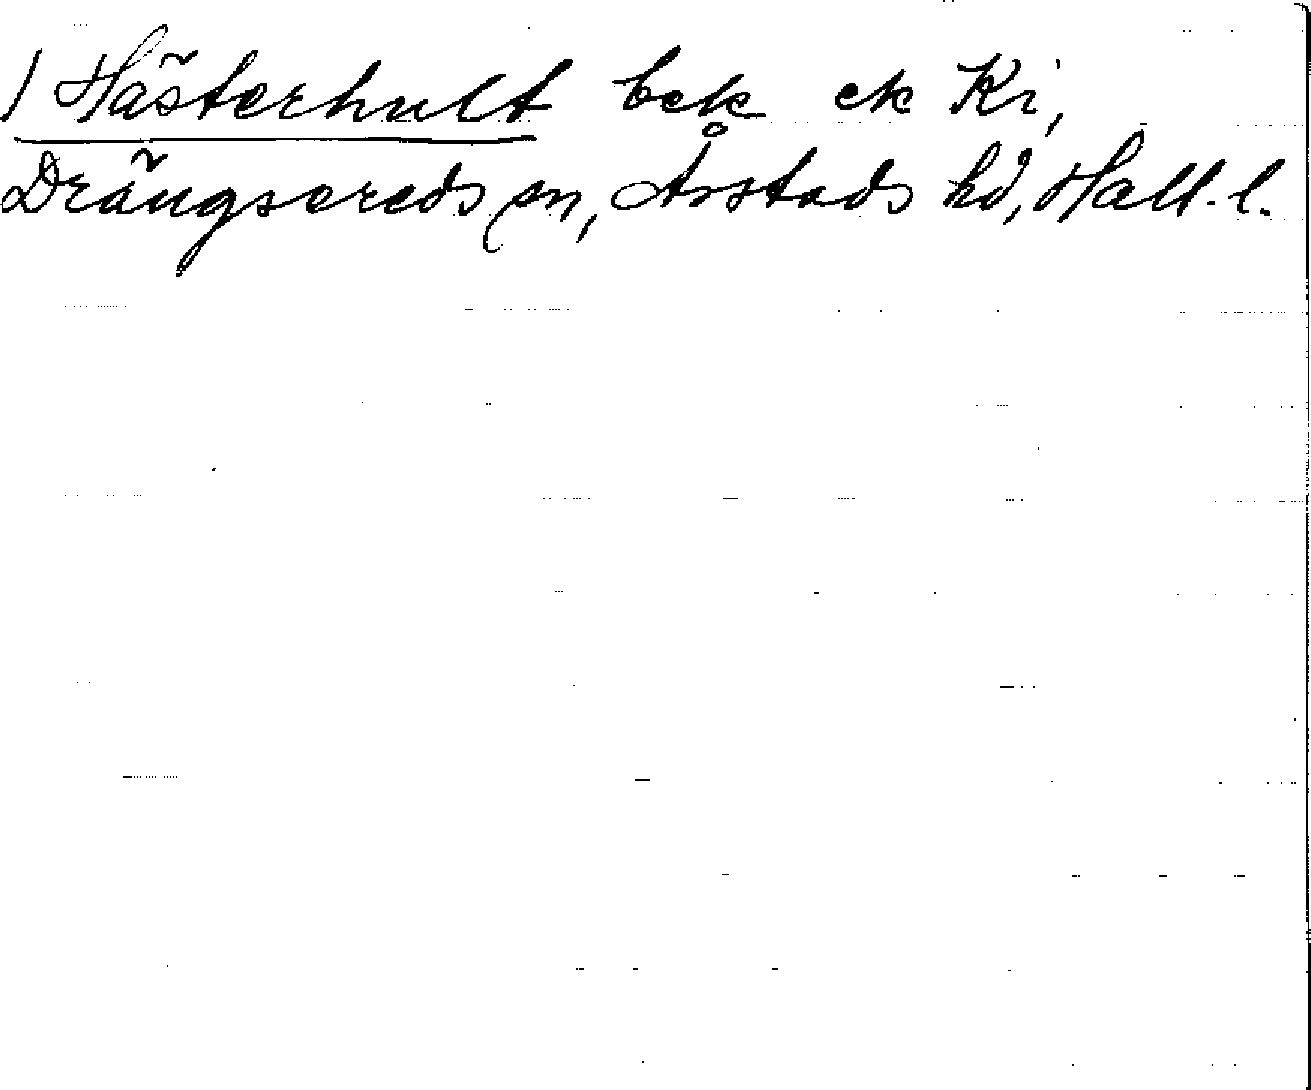 / Hästerhult bek ek Ki,
Drängsereds sn, Årstads hd, Hall. l.